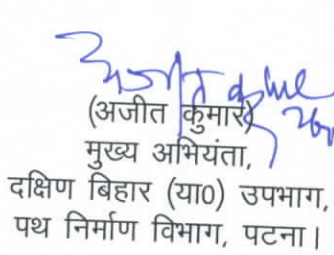 (अजीत कुमार)
मुख्य अभियंता,
दक्षिण बिहार (या0) उपभाग,
पथ निर्माण विभाग, पटना।